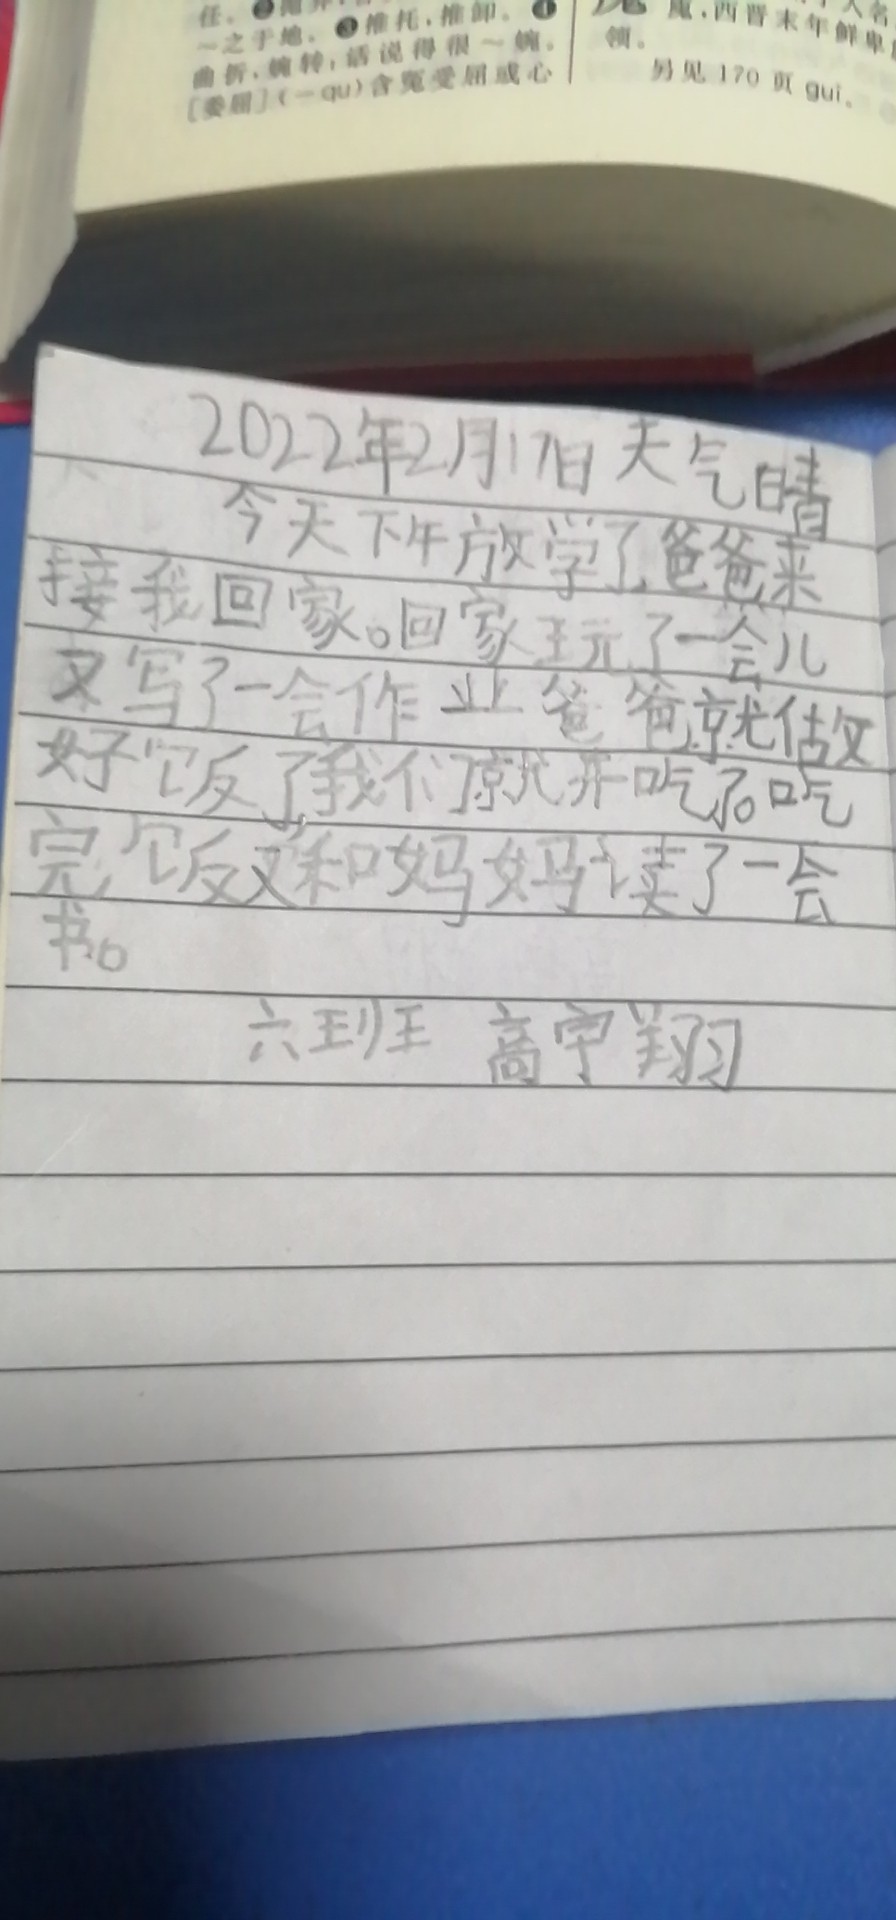 任。
～之于地。❸推托，推卸。❹
曲折，婉转：话说得很～婉。
[委屈](－qu)含冤受屈或心
，西晋末年鲜卑
领。
另见170页gui。
2022年2月17日 天气晴
今天下午放学了爸爸来
接我回家。回家玩了一会儿
又写了一会作业爸爸就做
好饭了我们就开吃了。吃
完饭又和妈妈读了一会
书。
六班 高宇翔